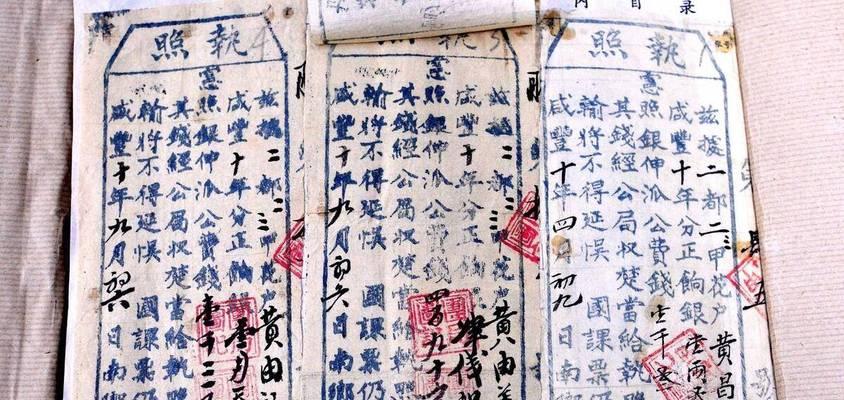 内 目 录
執照
兹據二都二三甲花户黄昌
咸豐十年分正餉銀壹兩
憲照銀伸派公費錢壹千
其錢經公局収楚當給執
輸將不得延悞 國課票仍
咸豐十年四月初九日南鄉
五
執照
兹據二都二三甲花户黄由
咸豐十年分正餉
憲照銀伸派公費錢四百九十
其錢經公局収楚當給執
輸將不得延悞 國課票仍
咸豐十年九月初六日南鄉
執照
兹據二都二三甲花户黄由
咸豐十年分正餉
憲照銀伸派公費錢壹千二
其錢經公局収楚當給執
輸將不得延悞 國課票仍
咸豐十年九月初六日南鄉